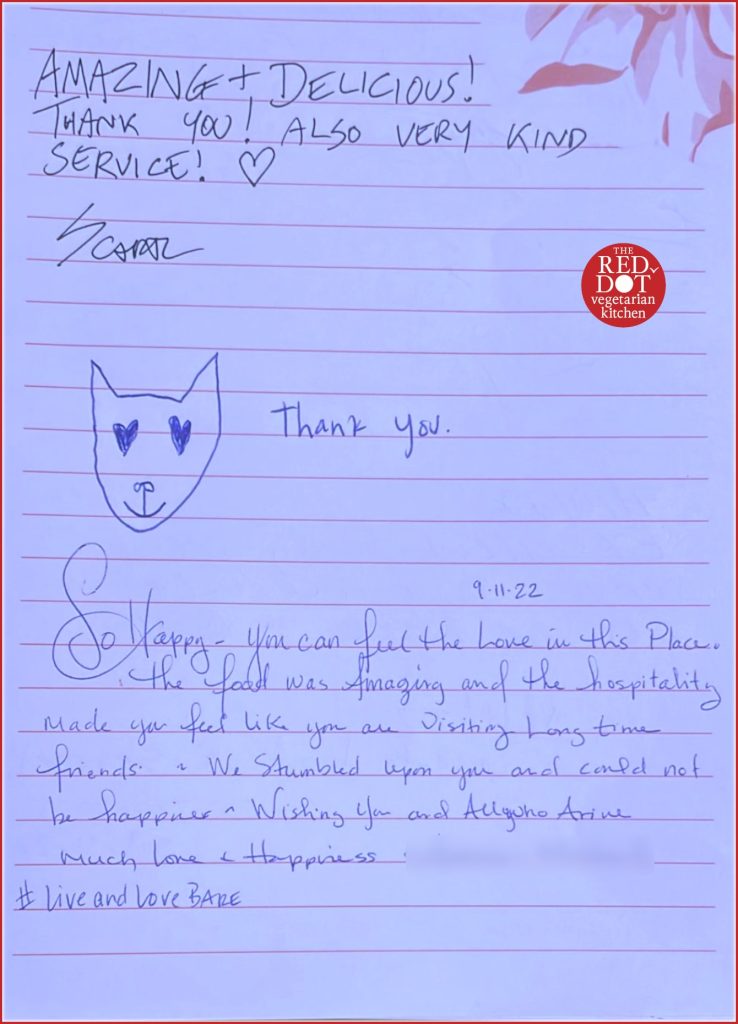 AMAZING + DELICIOUS!
THANK YOU! ALSO VERY KIND
SERVICE! ♡
THE
RED
DOT
vegetarian
kitchen
Thank you.
9.11.22
So Happy - You can feel the Love in this Place.
The food was Amazing and the hospitality
made you feel like you are Visiting Long time
friends. ~ We Stumbled upon you and could not
be happier ~ Wishing You and All who Arive
much love & Happiness
# Live and Love BARE